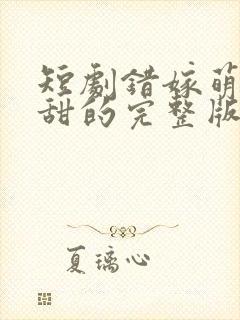 短劇錯嫁萌
甜的完整版
夏璃心